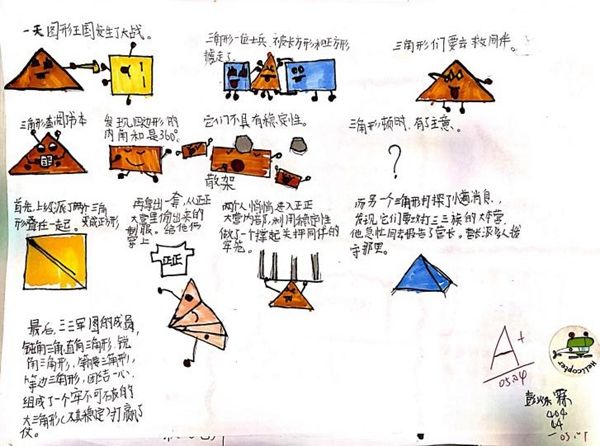 一天图形王国发生了大战。
三角形一位士兵,不被长方形和正方形
掳走了。
三角形们要去救同伴。
三角形查阅书本
发现四边形的
内角和是360°
它们不具有稳定性。
散架
三角形顿时有了主意。
?
首先,上级派了两个三角
形叠在一起变成正方形
再拿出一套从正正
大营里偷出来的
制服。给他们
穿上
正正
两个人悄悄进入正正
大营内部,利用稳定性
做了个撑起关押同伴的
牢笼。
而另一个三角形打探了小道消息,
发现它们要攻打三三族的大本营,
他急忙回去报告了营长。营长派号人拨
守那里。
最后,三三军团的成员,
钝角三角直角三角形,锐
角三角形,等腰三角形,
等边三角形,团结一心,
组成了一个牢不可破的
大三角形(不具稳定)打赢了
仗。
A+
05.24
Helicopter
404